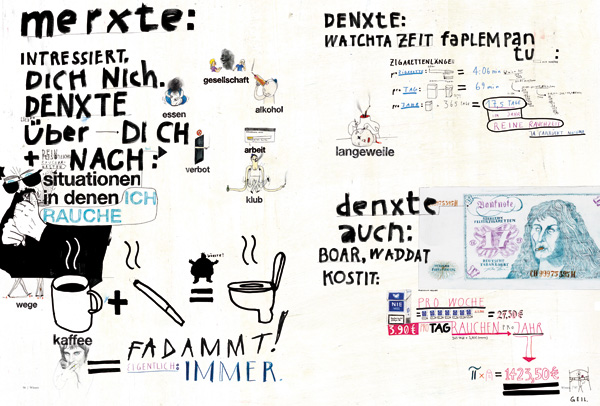 merxte:
INTRESSIERT,
DICH Nich.
DENXTE
über DICH
+ NACH:
situationen
in denen ICH
RAUCHE
gesellschaft
essen
alkohol
verbot
arbeit
klub
wege
kaffee
+
=
= FADAMMT!
EIGENTLICH: IMMER.
DENXTE:
WATCHTA ZEIT faPLEMPAN
tu :
ZIGARETTENLÄNGE:
= 4:06 min
pro TAG: = 69 min
pro JAHR: × 365 = 17,5 TAGE
REINE RAUCHZEIT
langeweile
denxte
auch:
BOAR, WADDAT
KOSTIT:
Banknote
PRO WOCHE
= 27,30€
NIE
3,90€
TAG RAUCHEN PRO JAHR
= 1423,50€
GEIL.